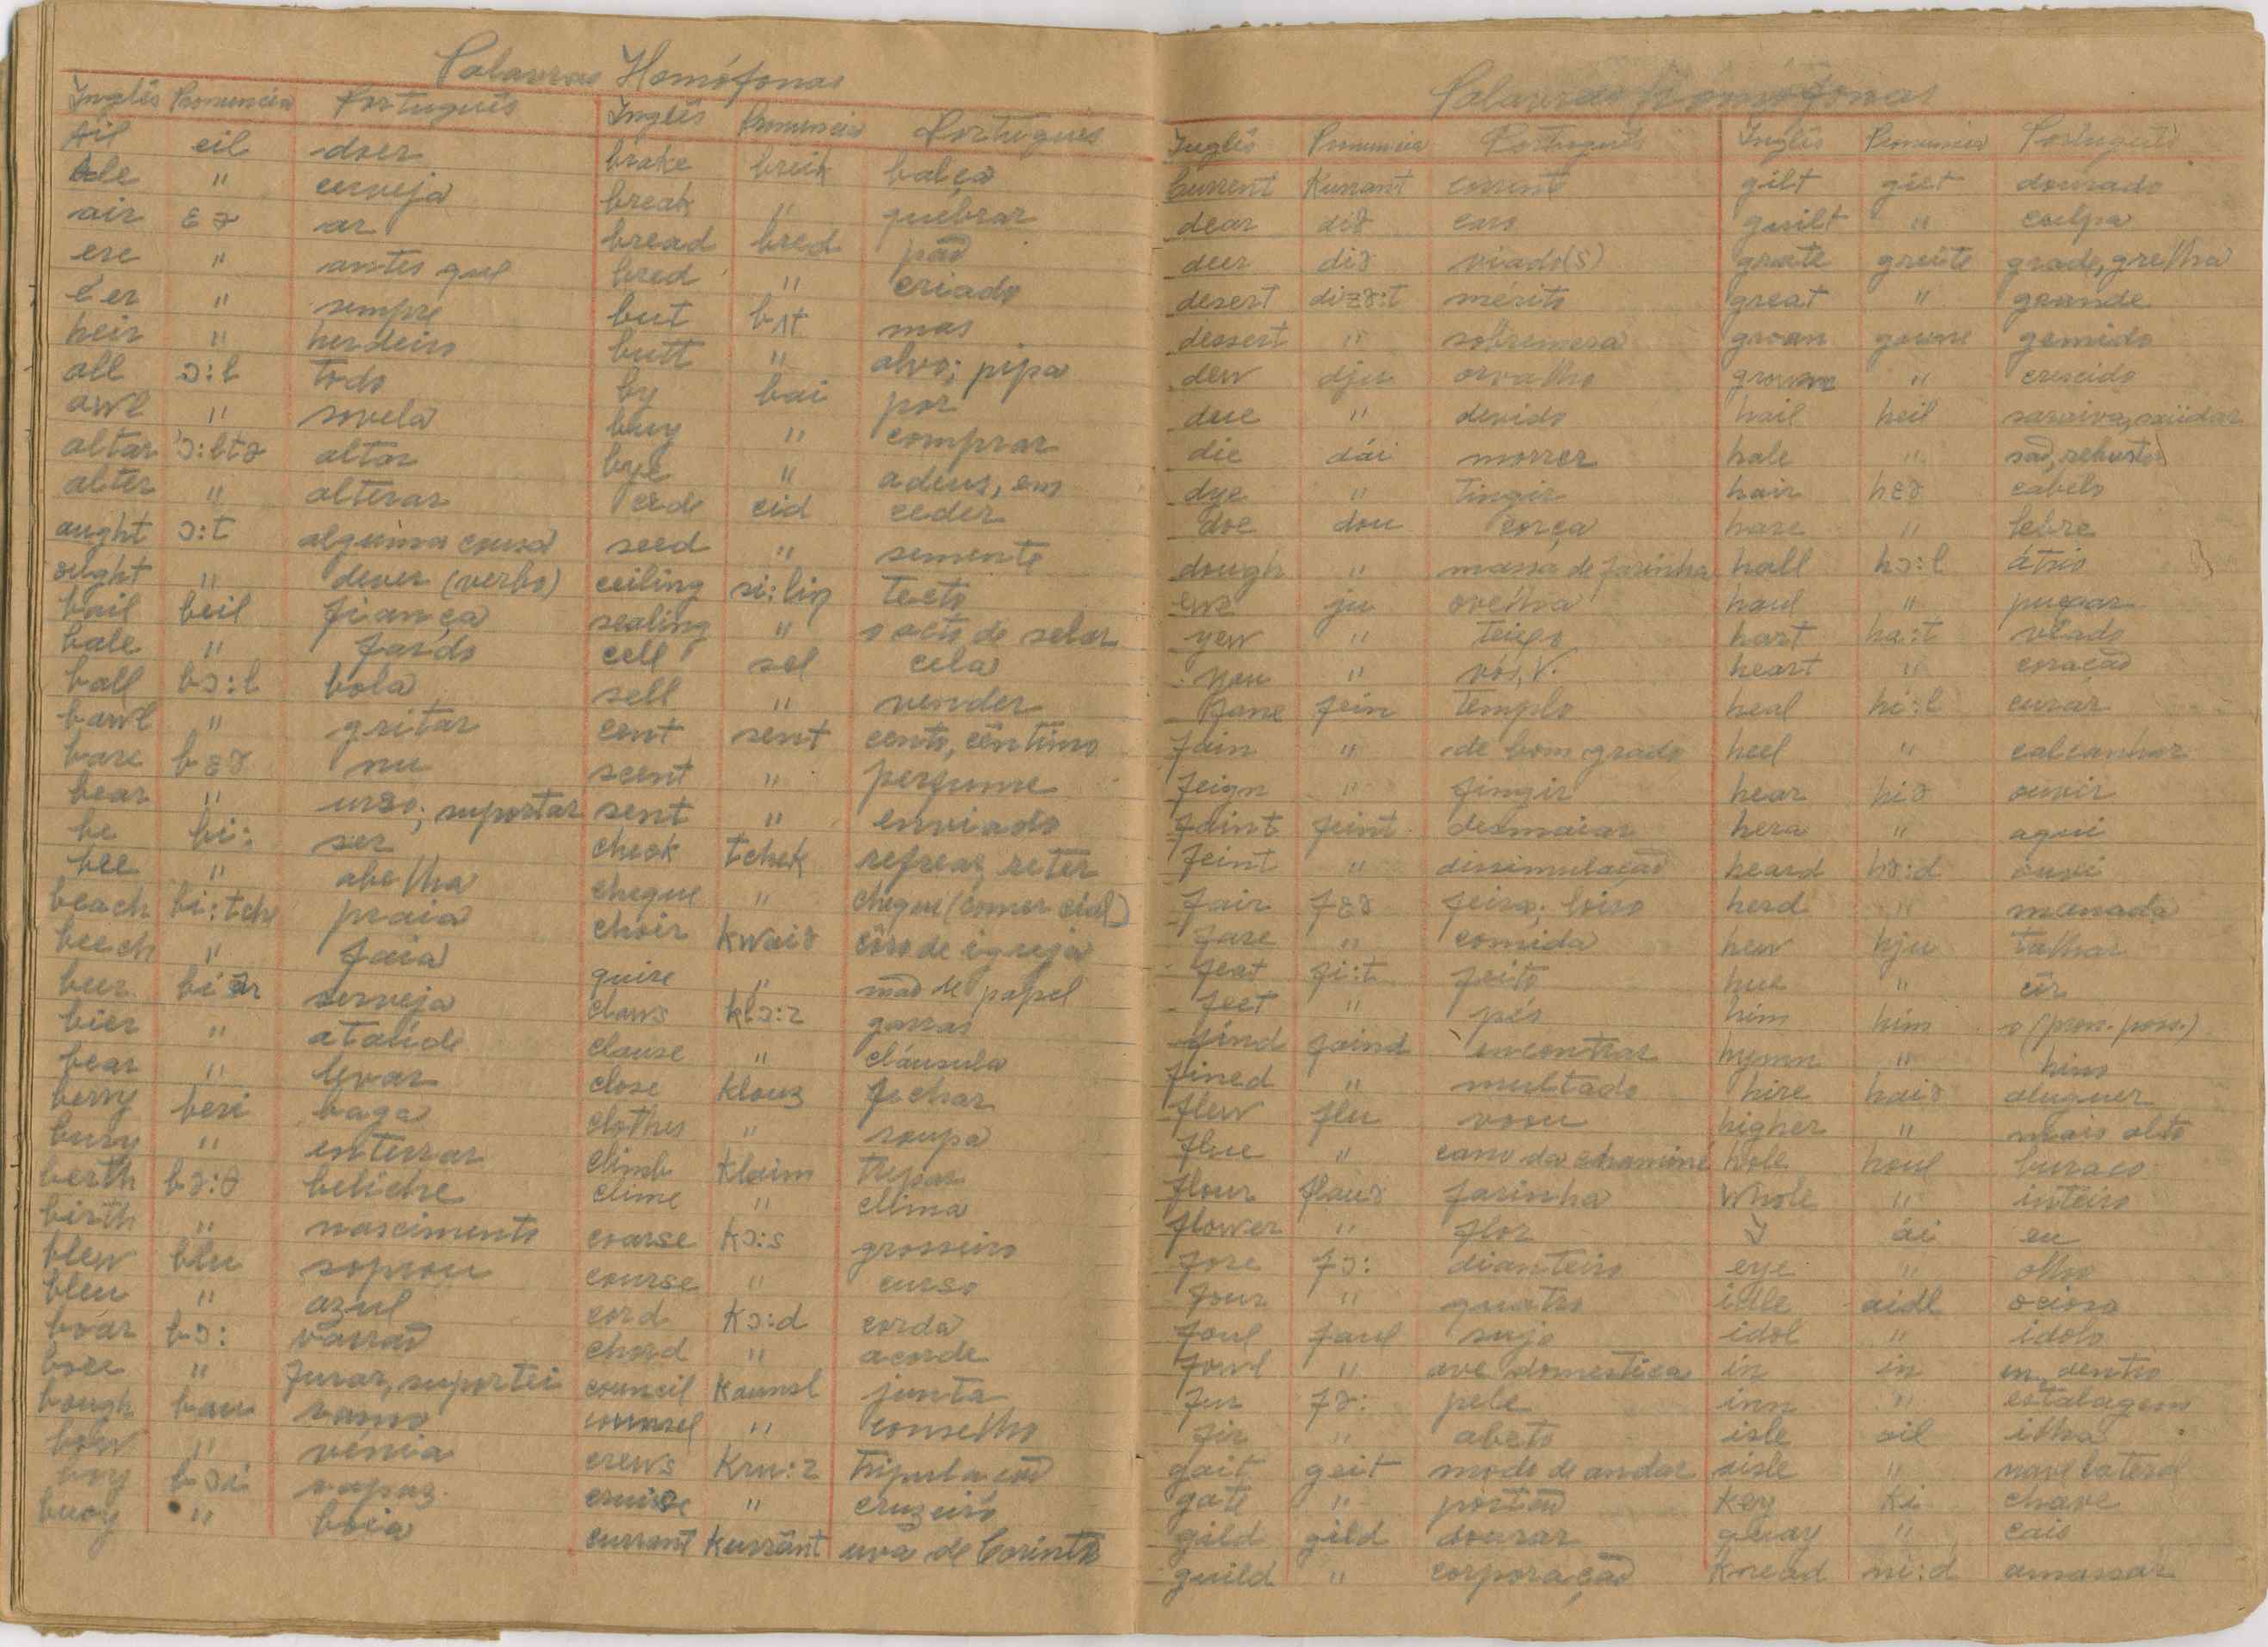 Palavras Homófonas
Inglês Pronuncia Português Inglês Pronuncia Português
Ail eil doer brake breik balça
Ale " cerveja break " quebrar
air ɛə ar bread bred pão
ere " antes que bred " criado
e'er " sempre but bʌt mas
heir " herdeiro butt " alvo; pipa
all ɔ:l todo by bai por
awl " sovela buy " comprar
altar ɔ:ltə altar bye " adeus, em
alter " alterar cede cid ceder
aught ɔ:t alguma cousa seed " semente
ought " dever (verbo) ceiling si:liŋ tecto
bail beil fiança sealing " o acto de selar
bale " fardo cell sel cela
ball bɔ:l bola sell " vender
bawl " gritar cent sent cento, cêntimo
bare bɛə nu scent " perfume
bear " urso; suportar sent " enviado
be bi: ser check tchek refrear, reter
bee " abelha cheque " cheque (comercial)
beach bi:tche praia choir kwaiə côro de igreja
beech " faia quire " mão de papel
beer biər serveja claws klɔ:z garras
bier " ataúde clause " cláusula
bear " levar close klouz fechar
berry beri baga clothes " roupa
bury " enterrar climb klaim trepar
berth bə:θ beliche clime " clima
birth " nascimento coarse kɔ:s grosseiro
blew blu soprou course " curso
bleu " azul cord kɔ:d corda
boar bɔ: varrão chord " acorde
bore " furar, suportei council kaunsl junta
bough bau ramo counsel " conselho
bow " vénia crews kru:z tripulação
boy bɔi rapaz. cruise " cruzeiro
buoy " boia currant kurrânt uva de Corinto
Palavras Homófonas
Inglês Pronuncia Português Inglês Pronuncia Português
Current Kurrant corrente gilt gilt dourado
dear diə caro guilt " culpa
deer diə viado(s) grate greite grade, grelha
desert dizə:t mérito great " grande
dessert " sobremesa groan goune gemido
dew dju orvalho grown " crescido
due " devido hail heil saraiva, saüdar
die dái morrer hale " são, robusto
dye " tingir hair hɛə cabelo
doe dou corça hare " lebre
dough " massa de farinha hall hɔ:l átrio
ewe ju ovelha haul " puxar
yew " teixo hart ha:t viado
you " vós, V. heart " coração
fane fein templo heal hi:l curar
fain " de bom grado heel " calcanhar
feign " fingir hear hiə ouvir
faint feint desmaiar here " aqui
feint " dissimulação heard hə:d ouvi
fair fɛə feira; loiro herd " manada
fare " comida hew hju talhar
feat fi:t feito hue " côr
feet " pés him him o (pron. poss.)
find faind encontrar hymn " hino
fined " multado hire haiə aluguer
flew flu voou higher " mais alto
flue " cano da chaminé hole houl buraco
flour flauə farinha whole " inteiro
flower " flor I ái eu
fore fɔ: dianteiro eye " olho
four " quatro idle aidl ocioso
foul faul sujo idol " idolo
fowl " ave domestica in in em, dentro
fur fə: pele inn " estalagem
fir " abeto isle ail ilha
gait geit modo de andar aisle " nave lateral
gate " portão key ki chave
gild gild dourar quay " cais
guild " corporação knead ni:d amassar